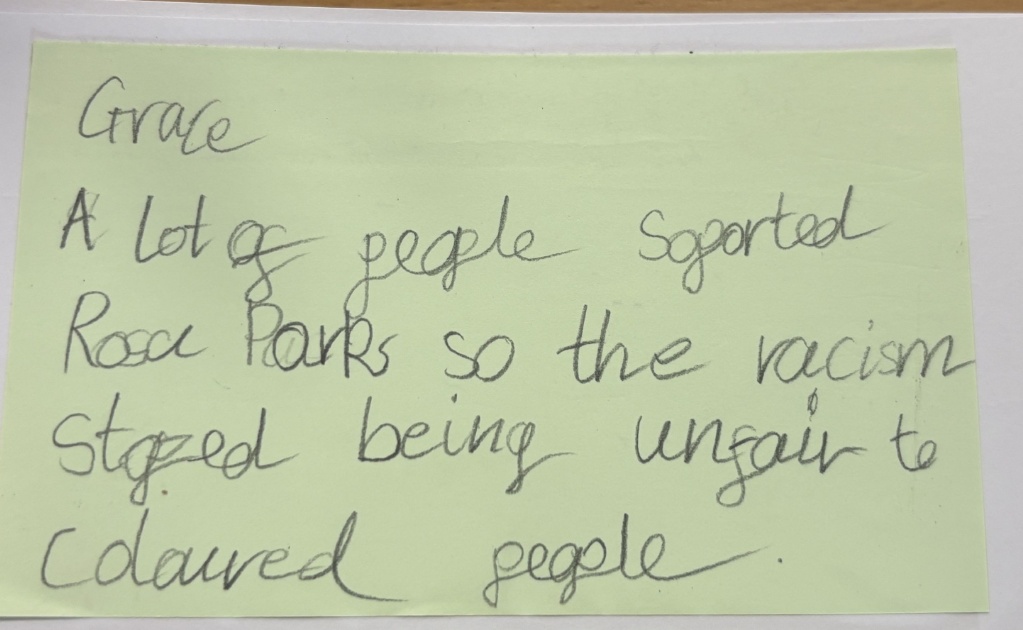 Grace
A lot of people soported
Rosa Parks so the racism
stopped being unfair to
coloured people.